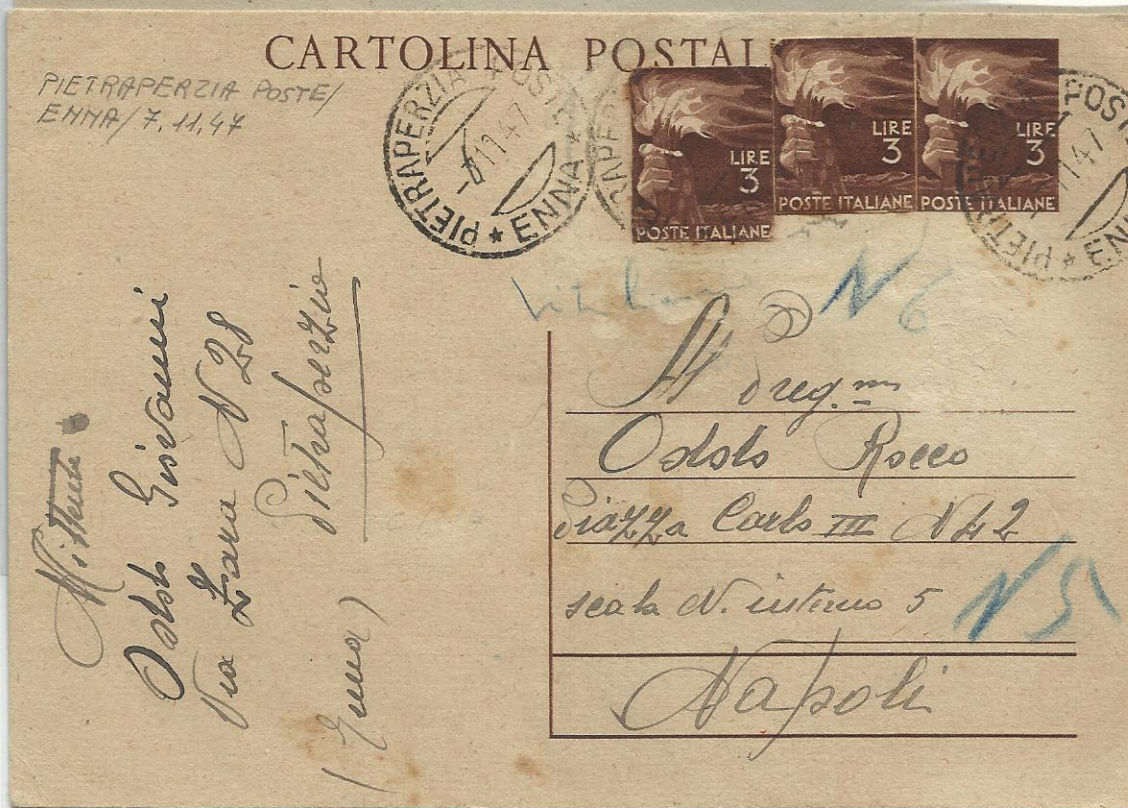 CARTOLINA POSTAL
PIETRAPERZIA POSTE/
ENNA/7.11.47
PIETRAPERZIA POSTE
11.47
* ENNA *
LIRE
3
POSTE ITALIANE
LIRE
3
POSTE ITALIANE
LIRE
3
POSTE ITALIANE
N 6
Al Preg.mo
Oddo Rocco
Piazza Carlo III N 42
scala N. interno 5
N 5
Napoli
Mittente
Oddo Giovanni
Via Zara N 28
Pietraperzia
(Enna)